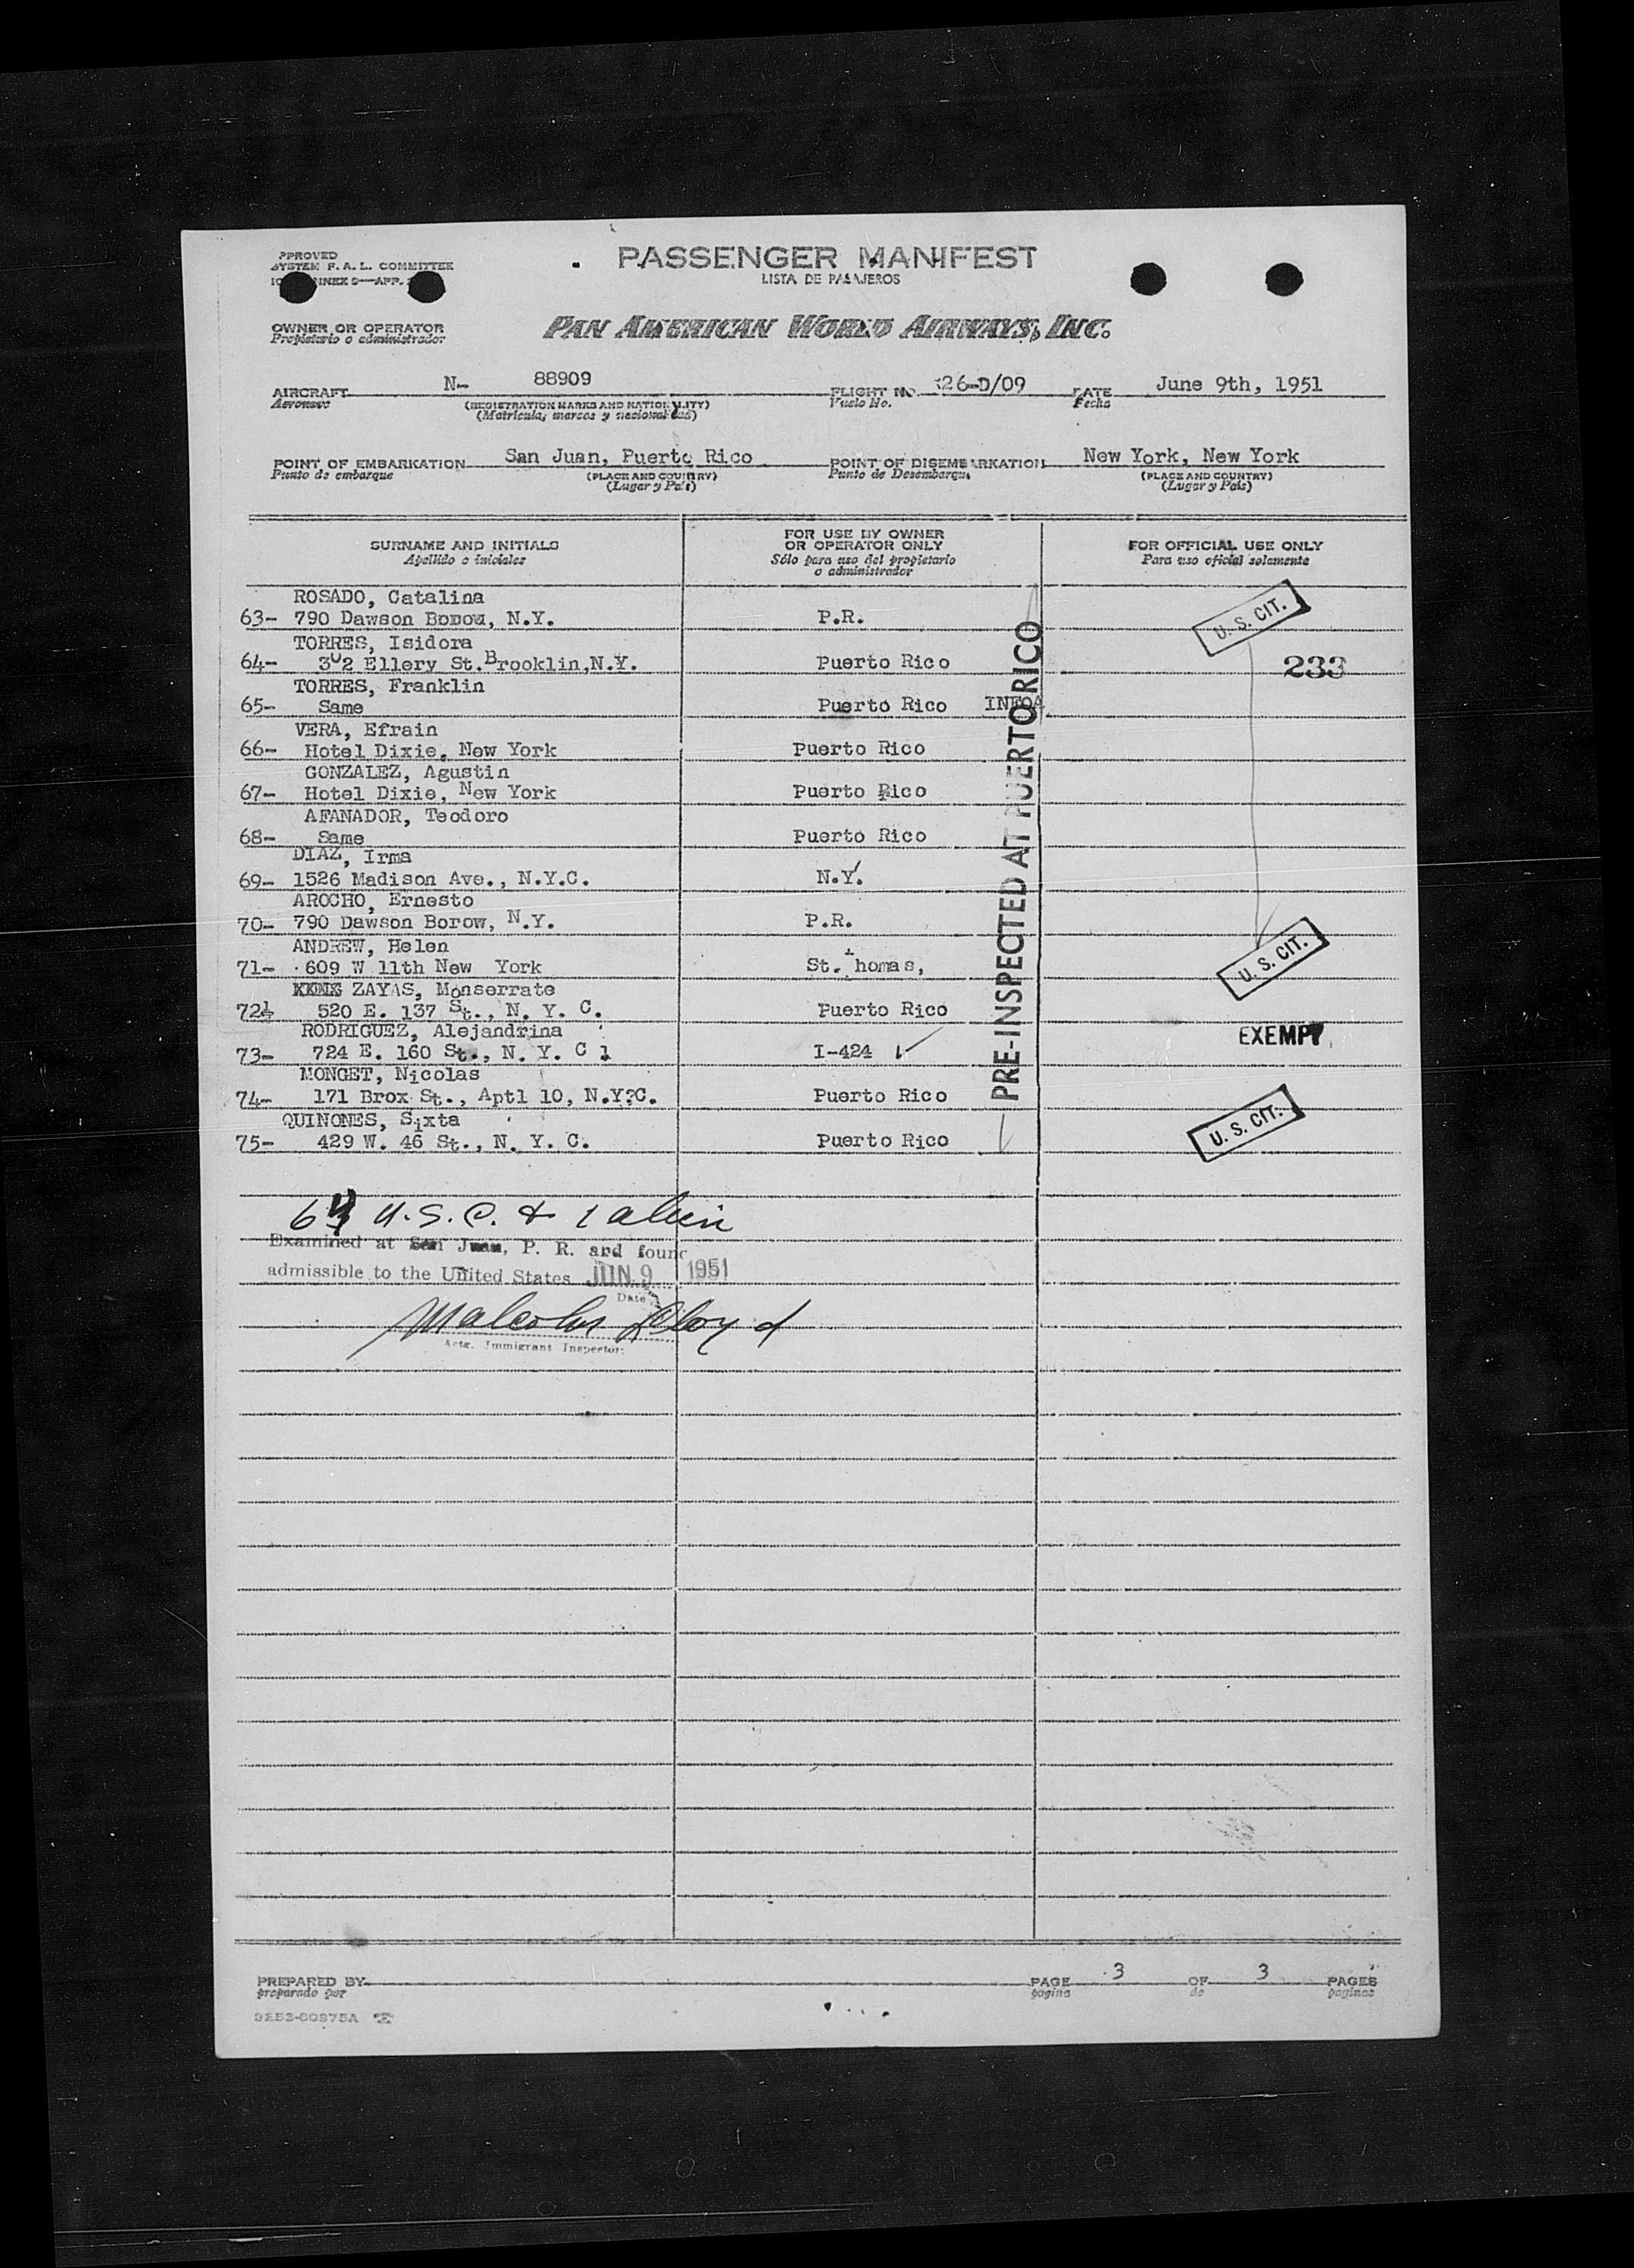 PPROVED
SYSTEM F. A. L. COMMITTEE
PASSENGER MANIFEST
LISTA DE PASAJEROS
OWNER OR OPERATOR
Propietario o administrador
PAN AMERICAN WORLD AIRWAYS, INC.
AIRCRAFT N- 88909 FLIGHT NO. 26-D/09 DATE June 9th, 1951
Aeronave (REGISTRATION MARKS AND NATIONALITY) Vuelo No. Fecha
(Matricula, marcas y nacionalidad)
POINT OF EMBARKATION San Juan, Puerto Rico POINT OF DISEMBARKATION New York, New York
Punto de embarque (PLACE AND COUNTRY) Punto de Desembarque (PLACE AND COUNTRY)
(Lugar y País) (Lugar y País)
SURNAME AND INITIALS FOR USE BY OWNER OR OPERATOR ONLY FOR OFFICIAL USE ONLY
Apellido e iniciales Sólo para uso del propietario o administrador Para uso oficial solamente
ROSADO, Catalina
63- 790 Dawson N.Y. P.R. U. S. CIT.
TORRES, Isidora
64- 302 Ellery St. Brooklin,N.Y. Puerto Rico 233
TORRES, Franklin
65- Same Puerto Rico
VERA, Efrain
66- Hotel Dixie, New York Puerto Rico
GONZALEZ, Agustin
67- Hotel Dixie, New York Puerto Rico
AFANADOR, Teodoro
68- Same Puerto Rico
DIAZ, Irma
69- 1526 Madison Ave., N.Y.C. N.Y.
AROCHO, Ernesto
70- 790 Dawson Borow, N.Y. P.R.
ANDREW, Helen
71- 609 W 11th New York St. thomas, U. S. CIT.
ZAYAS, Monserrate
72- 520 E. 137 St., N. Y. C. Puerto Rico
RODRIGUEZ, Alejandrina EXEMPT
73- 724 E. 160 St., N. Y. C I-424
MONGET, Nicolas
74- 171 Brox St., Aptl 10, N.Y?C. Puerto Rico
QUINONES, Sixta
75- 429 W. 46 St., N. Y. C. Puerto Rico U. S. CIT.
PRE-INSPECTED AT PUERTO RICO
U.S.C. & 1 alien
Examined at San Juan, P. R. and found
admissible to the United States JUN 9 1951
Date
Malcolm Lloyd
Actg. Immigrant Inspector
PREPARED BY PAGE 3 OF 3 PAGES
preparado por página de paginas